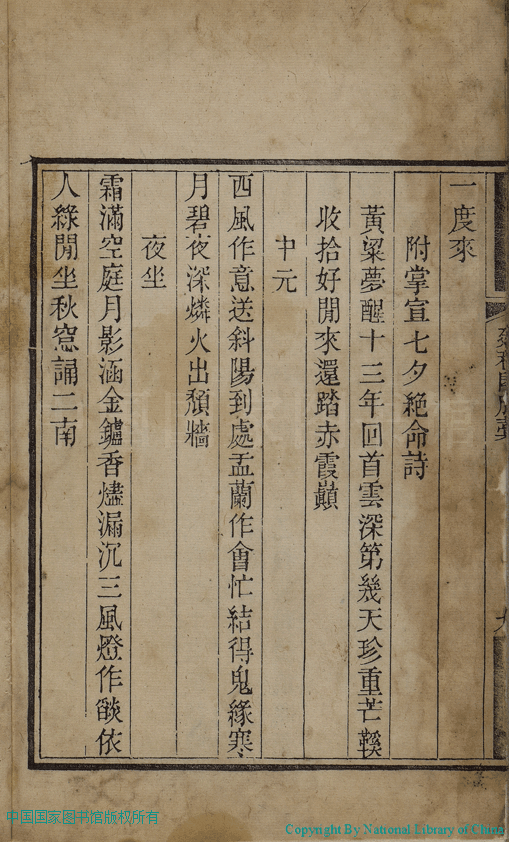 一度來
附掌宣七夕絶命詩
黃粱夢醒十三年回首雲深第幾天珍重芒鞵
收拾好閒來還踏赤霞巔
中元
西風作意送斜陽到處盂蘭作會忙結得鬼緣寒
月碧夜深燐火出頽牆
夜坐
霜滿空庭月影涵金鑪香燼漏沉三風燈作燄依
人綠閒坐秋窓誦二南
中国国家图书馆版权所有
Copyright By National Library of China